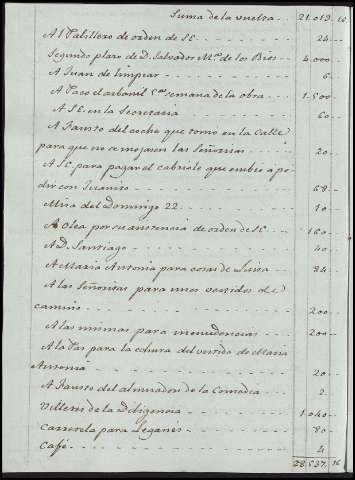 Suma de la vuelta 21.019. 16
Al Palillero de orden de SE 24
Segundo plazo de D. Salvador Mª de los Rios 4.000
A Juan de limpiar 6
A Paco el arbañil semana de la obra 1.500
A SE. en la Secretaria 60
A Fausto del coche que tomo en la calle
para que no se mojasen las Señoritas 20
A SE para pagar el cabriole que embio a pe
dir con 68
Misa del Domingo 22 10
A Olea por su asistencia de orden de SE 160
A D. Santiago 40
A Maria Antonia para cosas de Luisa 84
A las Señoritas para unos vestidos de
camino 200
A las mismas para menudencias 200
A la para la echura del vestido de Maria
Antonia 20
A Fausto del almuador de la Comadre 2
Villetes de la Diligencia 1.040
Carretela para Leganes 80
Café 4
28.537. 16